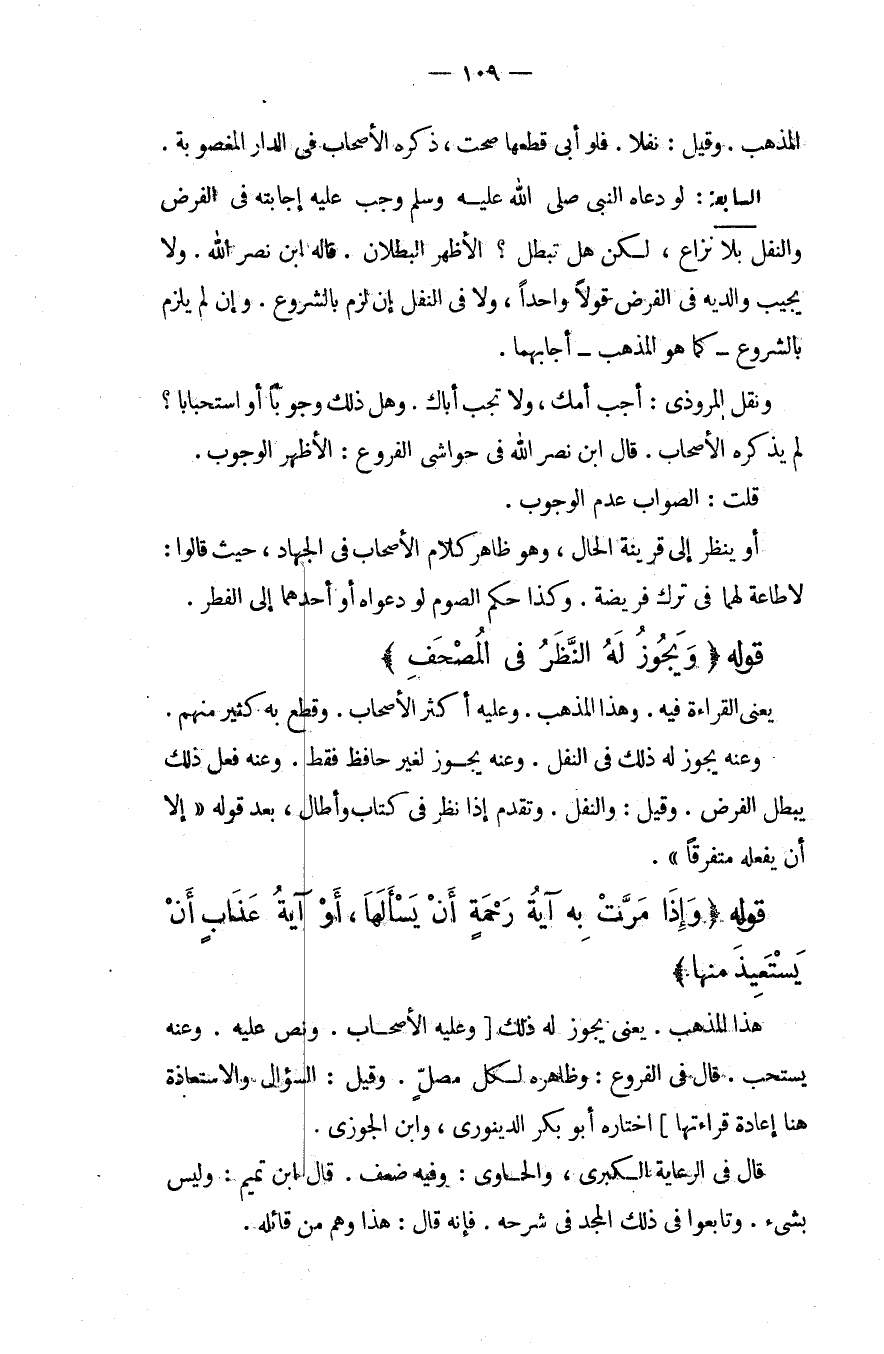 — ١٠٩ —
المذهب . وقيل : نفلا . فلو أبى قطعها صحت ، ذكره الأصحاب فى الدار المغصوبة .
السابعة : لو دعاه النبى صلى الله عليـه وسلم وجب عليه إجابته فى الفرض
والنفل بلا نزاع ، لـكن هل تبطل ؟ الأظهر البطلان . قاله ابن نصر الله . ولا
يجيب والديه فى الفرض قولاً واحداً ، ولا فى النفل إن لزم بالشروع . وإن لم يلزم
بالشروع ــ كما هو المذهب ــ أجابهما .
ونقل المروذى : أجب أمك ، ولا تجب أباك . وهل ذلك وجوباً أو استحبابا ؟
لم يذكره الأصحاب . قال ابن نصر الله فى حواشى الفروع : الأظهر الوجوب .
قلت : الصواب عدم الوجوب .
أو ينظر إلى قرينة الحال ، وهو ظاهر كلام الأصحاب فى الجهاد ، حيث قالوا :
لاطاعة لهما فى ترك فريضة . وكذا حكم الصوم لو دعواه أو أحدهما إلى الفطر .
قوله ﴿ وَيَجُوزُ لَهُ النَّظَرُ فى الْمُصْحَفِ ﴾
يعنى القراءة فيه . وهذا المذهب . وعليه أكثر الأصحاب . وقطع به كثير منهم .
وعنه يجوز له ذلك فى النفل . وعنه يجـوز لغير حافظ فقط . وعنه فعل ذلك
يبطل الفرض . وقيل : والنفل . وتقدم إذا نظر فى كتاب وأطال ، بعد قوله « إلا
أن يفعله متفرقاً » .
قوله ﴿ وَإِذَا مَرَّتْ بِه آيَةُ رَحْمَةٍ أَنْ يَسْأَلَهَا ، أَوْ آيَةُ عَذَابٍ أَنْ
يَسْتَعِيذَ منها ﴾
هذا المذهب . يعنى يجوز له ذلك [ وعليه الأصحـاب . ونص عليه . وعنه
يستحب . قال فى الفروع : وظاهره لـكل مصلٍّ . وقيل : السؤال والاستعاذة
هنا إعادة قراءتها ] اختاره أبو بكر الدينورى ، وابن الجوزى .
قال فى الرعاية الـكبرى ، والحـاوى : وفيه ضعف . قال ابن تميم : وليس
بشىء . وتابعوا فى ذلك المجد فى شرحه . فإنه قال : هذا وهم من قائله .